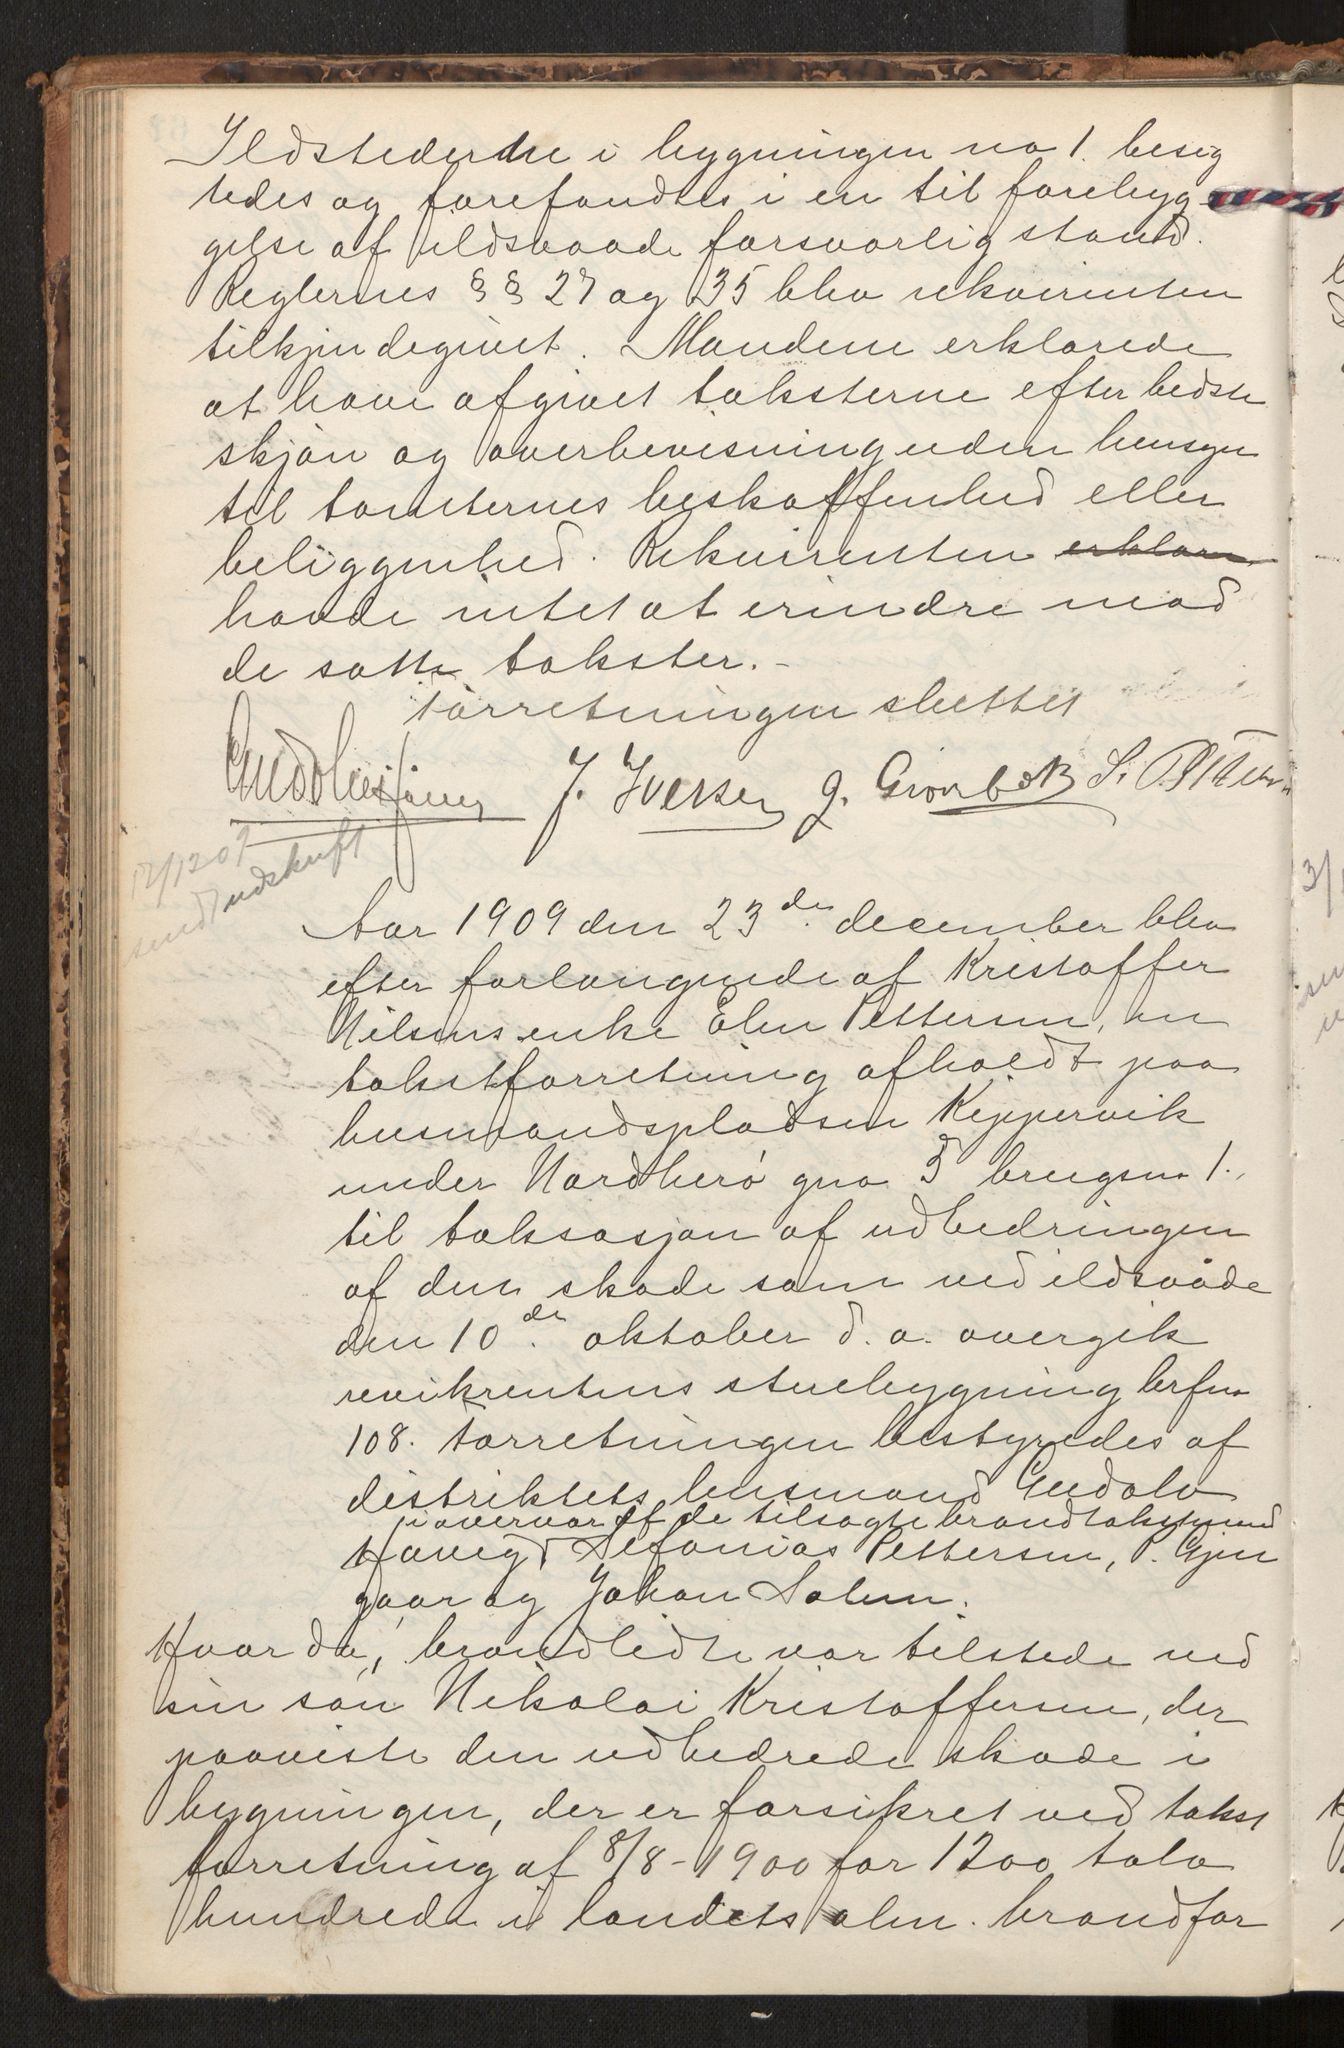 Ildstederne i bygningen no 1. besig
tedes og forefandtes i en til forebyg-
gelse af ildsvaade forsvarlig stand.
Reglernes §§ 27 og 35 blev rekvirenten
tilkjendegivet. Mændene erklærede
at have afgivet taksterne efter bedste
skjøn og overbevisning uden hensyn
til tomternes beskaffenhed eller
beliggenhed. Rekvirenten erklære
havde intet at erindre mod
de satte takster.-
Forretningen sluttet
J. Iversen J. Grønbek S. Petter
12/1 207
send udskrift
Aar 1909 den 23de. december blev
efter forlangende af Kristoffer
Nilsens enke Elen Pettersen, en
takstforretning afholdt paa
husmandspladsen Kippervik
under Nordherø gno 3 brugsn. 1.,
til taksasjon af udbedringen
af den skade som ved ildsvåde
den 10de. oktober d. a. overgik
revikrentens stuebygning brfno
108. Forretningen bestyredes af
distriktets lensmand Gudolv
i overvær af de tilsagte brandtakstmænd
Haveg Sefanias Pettersen, P. Gjen
gaar og Johan Solem.
Hvor da, brandlidte var tilstede ved
sin søn Nikolai Kristoffersen, der
paaviste den udbedrede skade i
bygningen, der er forsikret ved takst
forretning af 8/8-1900 for 1200 tolv
hundrede i landets alm. brandfor